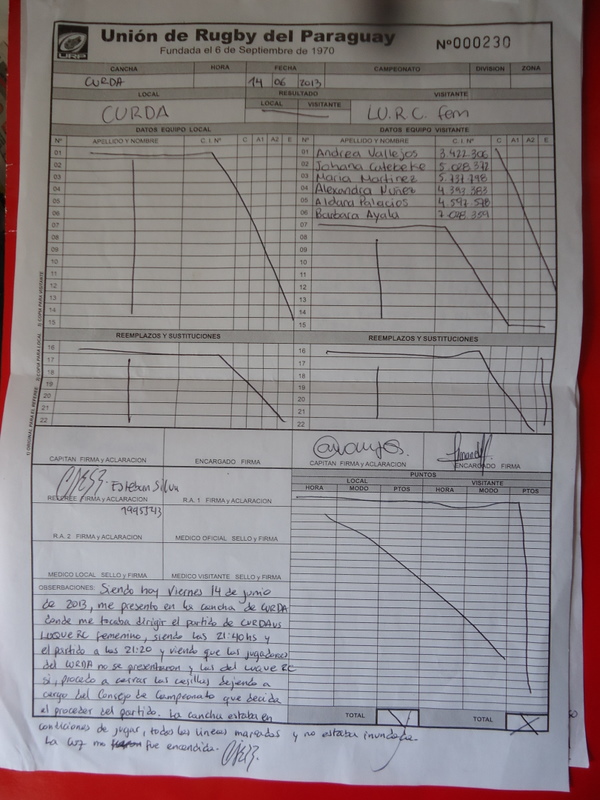 URP
Unión de Rugby del Paraguay
Fundada el 6 de Septiembre de 1970
Nº000230
CANCHA HORA FECHA CAMPEONATO DIVISION ZONA
CURDA 14 06 2013
LOCAL RESULTADO VISITANTE
CURDA LOCAL VISITANTE L.U.R.C. fem
DATOS EQUIPO LOCAL DATOS EQUIPO VISITANTE
Nº APELLIDO Y NOMBRE C. I. Nº C A1 A2 E Nº APELLIDO Y NOMBRE C. I. Nº C A1 A2 E
01 01 Andrea Vallejos 3.422.306
02 02 Johana 5.028.372
03 03 Maria Martinez 5.131.798
04 04 Alexandra Nuñez 4.393.383
05 05 Aldana Palacios 4.597.578
06 06 Barbara Ayala 7.028.359
07 07
08 08
09 09
10 10
11 11
12 12
13 13
14 14
15 15
REEMPLAZOS Y SUSTITUCIONES REEMPLAZOS Y SUSTITUCIONES
16 16
17 17
18 18
19 19
20 20
21 21
22 22
CAPITAN FIRMA y ACLARACION ENCARGADO FIRMA CAPITAN FIRMA y ACLARACION ENCARGADO FIRMA
Esteban Silva
REFEREE FIRMA y ACLARACION R.A. 1 FIRMA y ACLARACION
1995543
R.A. 2 FIRMA y ACLARACION MEDICO OFICIAL SELLO y FIRMA
MEDICO LOCAL SELLO y FIRMA MEDICO VISITANTE SELLO y FIRMA
PUNTOS
LOCAL VISITANTE
HORA MODO PTOS HORA MODO PTOS
OBSERVACIONES: Siendo hoy Viernes 14 de junio
de 2013, me presento en la cancha de CURDA
donde me tocaba dirigir el partido de CURDA vs
LUQUE RC femenino, siendo las 21:40hs y
el partido a las 21:20 y viendo que las jugadoras
del CURDA no se presentaron y las del LUQUE RC
si, procedo a cerrar las casillas dejando a
cargo del Consejo de Campeonato que decida
el proceder del partido. La cancha estaba en
condiciones de jugar, todas las lineas marcadas y no estaba inundada.
La luz no fue encendida.
TOTAL TOTAL